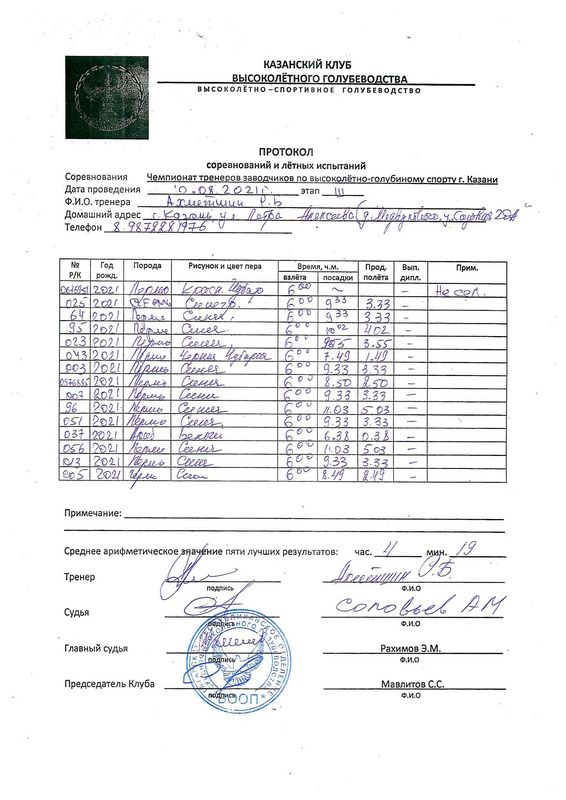 КАЗАНСКИЙ КЛУБ
ВЫСОКОЛЁТНОГО ГОЛУБЕВОДСТВА
ВЫСОКОЛЁТНО –СПОРТИВНОЕ ГОЛУБЕВОДСТВО
ПРОТОКОЛ
соревнований и лётных испытаний
Соревнования Чемпионат тренеров заводчиков по высоколётно-голубиному спорту г. Казани
Дата проведения 10.08.2021г. этап III
Ф.И.О. тренера Ахметшин Р.Б
Домашний адрес г. Казань ул Петра Алексеева
Телефон 89878281976
№ Р/К Год рожд. Порода Рисунок и цвет пера Время, ч.м. Прод. полёта Вып. дипл. Прим.
взлёта посадки
2021 Пермь Красн. 6 00 ~ – Не сел.
025 2021 Синегр. 6 00 9 33 3.33 –
64 2021 Синяя. 6 00 9 33 3.33 –
95 2021 Пермь Синяя 6 00 10 02 4.02 –
023 2021 Пермь Синяя 6 00 9.55 3.55 –
043 2021 Пермь Черная 6 00 7.49 1.49 –
003 2021 Пермь Синяя 6 00 9.33 3.33 –
2021 Пермь Синяя 6 00 8.50 2.50 –
007 2021 Пермь Синяя 6 00 9.33 3.33 –
96 2021 Пермь Синяя 6 00 11.03 5.03 –
051 2021 Пермь Синяя 6 00 9.33 3.33 –
037 2021 6 00 6.38 0.38 –
056 2021 Пермь Синяя 6 00 11.03 5.03 –
013 2021 Пермь Синяя 6 00 9.33 3.33 –
005 2021 Перм Син 6 00 8.49 2.49 –
Примечание:
Среднее арифметическое значение пяти лучших результатов: час. 4 мин. 19
Тренер Ахметшин Р.Б.
подпись Ф.И.О
Судья Соловьев А М
подпись Ф.И.О
Главный судья Рахимов Э.М.
подпись Ф.И.О
Председатель Клуба Мавлитов С.С.
подпись Ф.И.О
ВООП